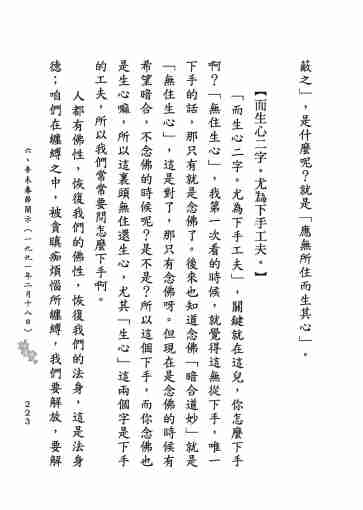 蔽之」，是什麼呢？就是「應無所住而生其心」。
【而生心二字。尤為下手工夫。】
「而生心二字。尤為下手工夫」，關鍵就在這兒，你怎麼下手
啊？「無住生心」，我第一次看的時候，就覺得這無從下手，唯一
下手的話，那只有就是念佛了。後來也知道念佛「暗合道妙」就是
「無住生心」，這是對了，那只有念佛呀。但現在是念佛的時候有
希望暗合，不念佛的時候呢？是不是？所以這個下手，而你念佛也
是生心嘛，所以這裏頭無住還生心，尤其「生心」這兩個字是下手
的工夫，所以我們常常要問怎麼下手啊。
人都有佛性，恢復我們的佛性，恢復我們的法身，這是法身
德；咱們在纏縛之中，被貪瞋痴煩惱所纏縛，我們要解放，要解
六、辛未春節開示（一九九一年二月十八日）
223